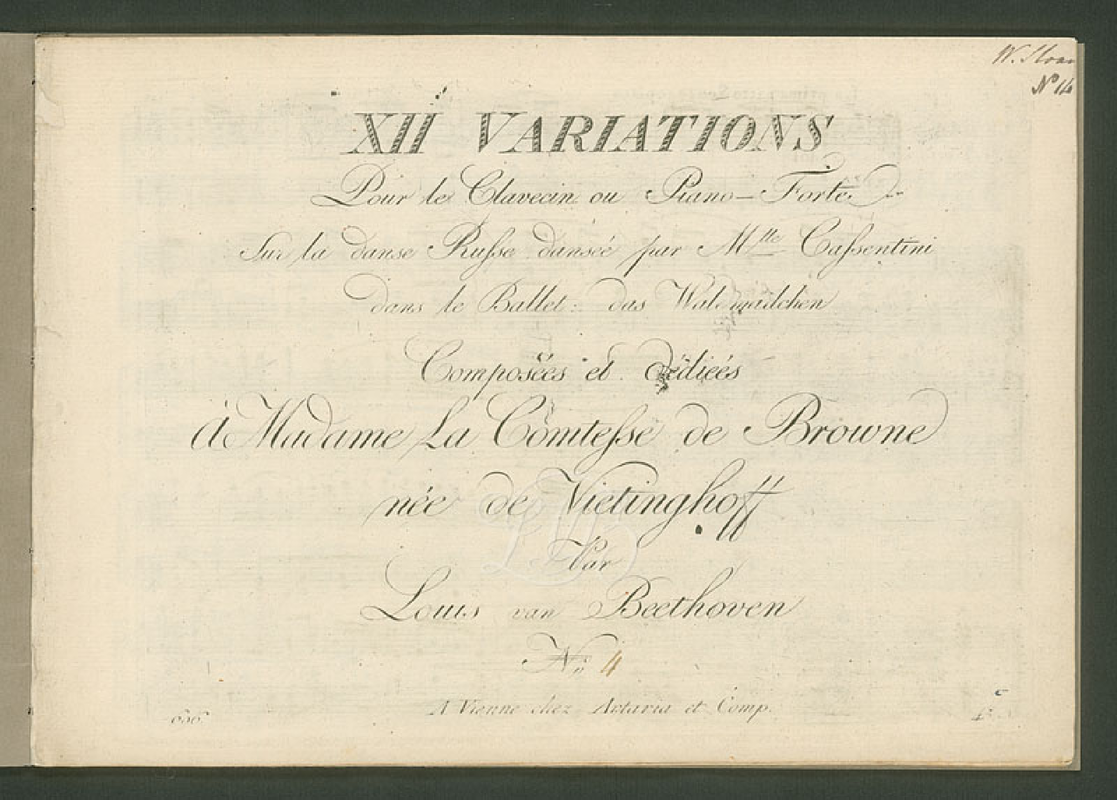 XII VARIATIONS
Pour le Clavecin ou Piano-Forte
Sur la danse Russe dansée par Mlle Cassentini
dans le Ballet: das Waldmädchen
Composées et dédiées
à Madame La Comtesse de Browne
née de Vietinghoff
Par
Louis van Beethoven
No 4
A Vienne chez Artaria et Comp.
656